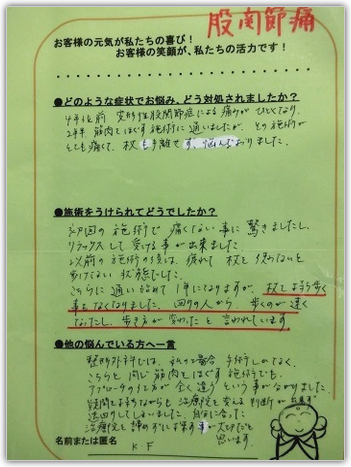 股関節痛
お客様の元気が私たちの喜び！
お客様の笑顔が、私たちの活力です！
●どのような症状でお悩み、どう対処されましたか？
4年位前 変形性股関節症による痛みがひどくなり、
2年半 筋肉をほぐす施術に通いましたが、その施術が
とても痛くて、杖も手離せず、悩んでおりました。
●施術をうけられてどうでしたか？
初回の施術で痛くない事に驚きましたし、
リラックスして受ける事が出来ました。
以前の施術の後は、疲れて杖を使わないと
歩けない状態でした。
こちらに通い始めて1年になりますが、杖を持ち歩く
事もなくなりました。回りの人から 歩くのが速く
なったし、歩き方が変わったと言われています。
●他の悩んでいる方へ一言
整形外科では、私の場合 手術しかなく、
こちらと同じ筋肉をほぐす施術でも、
アプローチの仕方が全く違うという事がわかりました。
疑問を持ちながらも治療院を変える判断が出来ず
遠回りしてしまいました。自分に合った
治療院を諦めずに探す事が大切だと
思います。
名前または匿名 K F